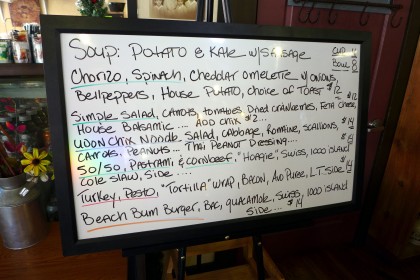 Soup: Potato & Kale w/ Sausage Cup
Bowl 8
Chorizo, Spinach, Cheddar omelette w/ onions,
Bellpeppers, House Potato, choice of Toast $12
Simple Salad, Carrots, tomatoes, Dried cranberries, Feta Cheese, $12
House Balsamic.... ADD chix $2...
Udon Chix Noodle Salad, Cabbage, Romaine, scallions, $14
Carrots, Peanuts... Thai Peanut Dressing....
50/50, Pastrami & cornbeef, "Hoagie", Swiss, 1000 island $14
Cole slaw, side....
Turkey, Pesto, "Tortilla" wrap, Bacon, Avo Puree, L.T. side $14
Beach Bum Burger, Bac, guacamole, Swiss, 1000 island
Side... $14